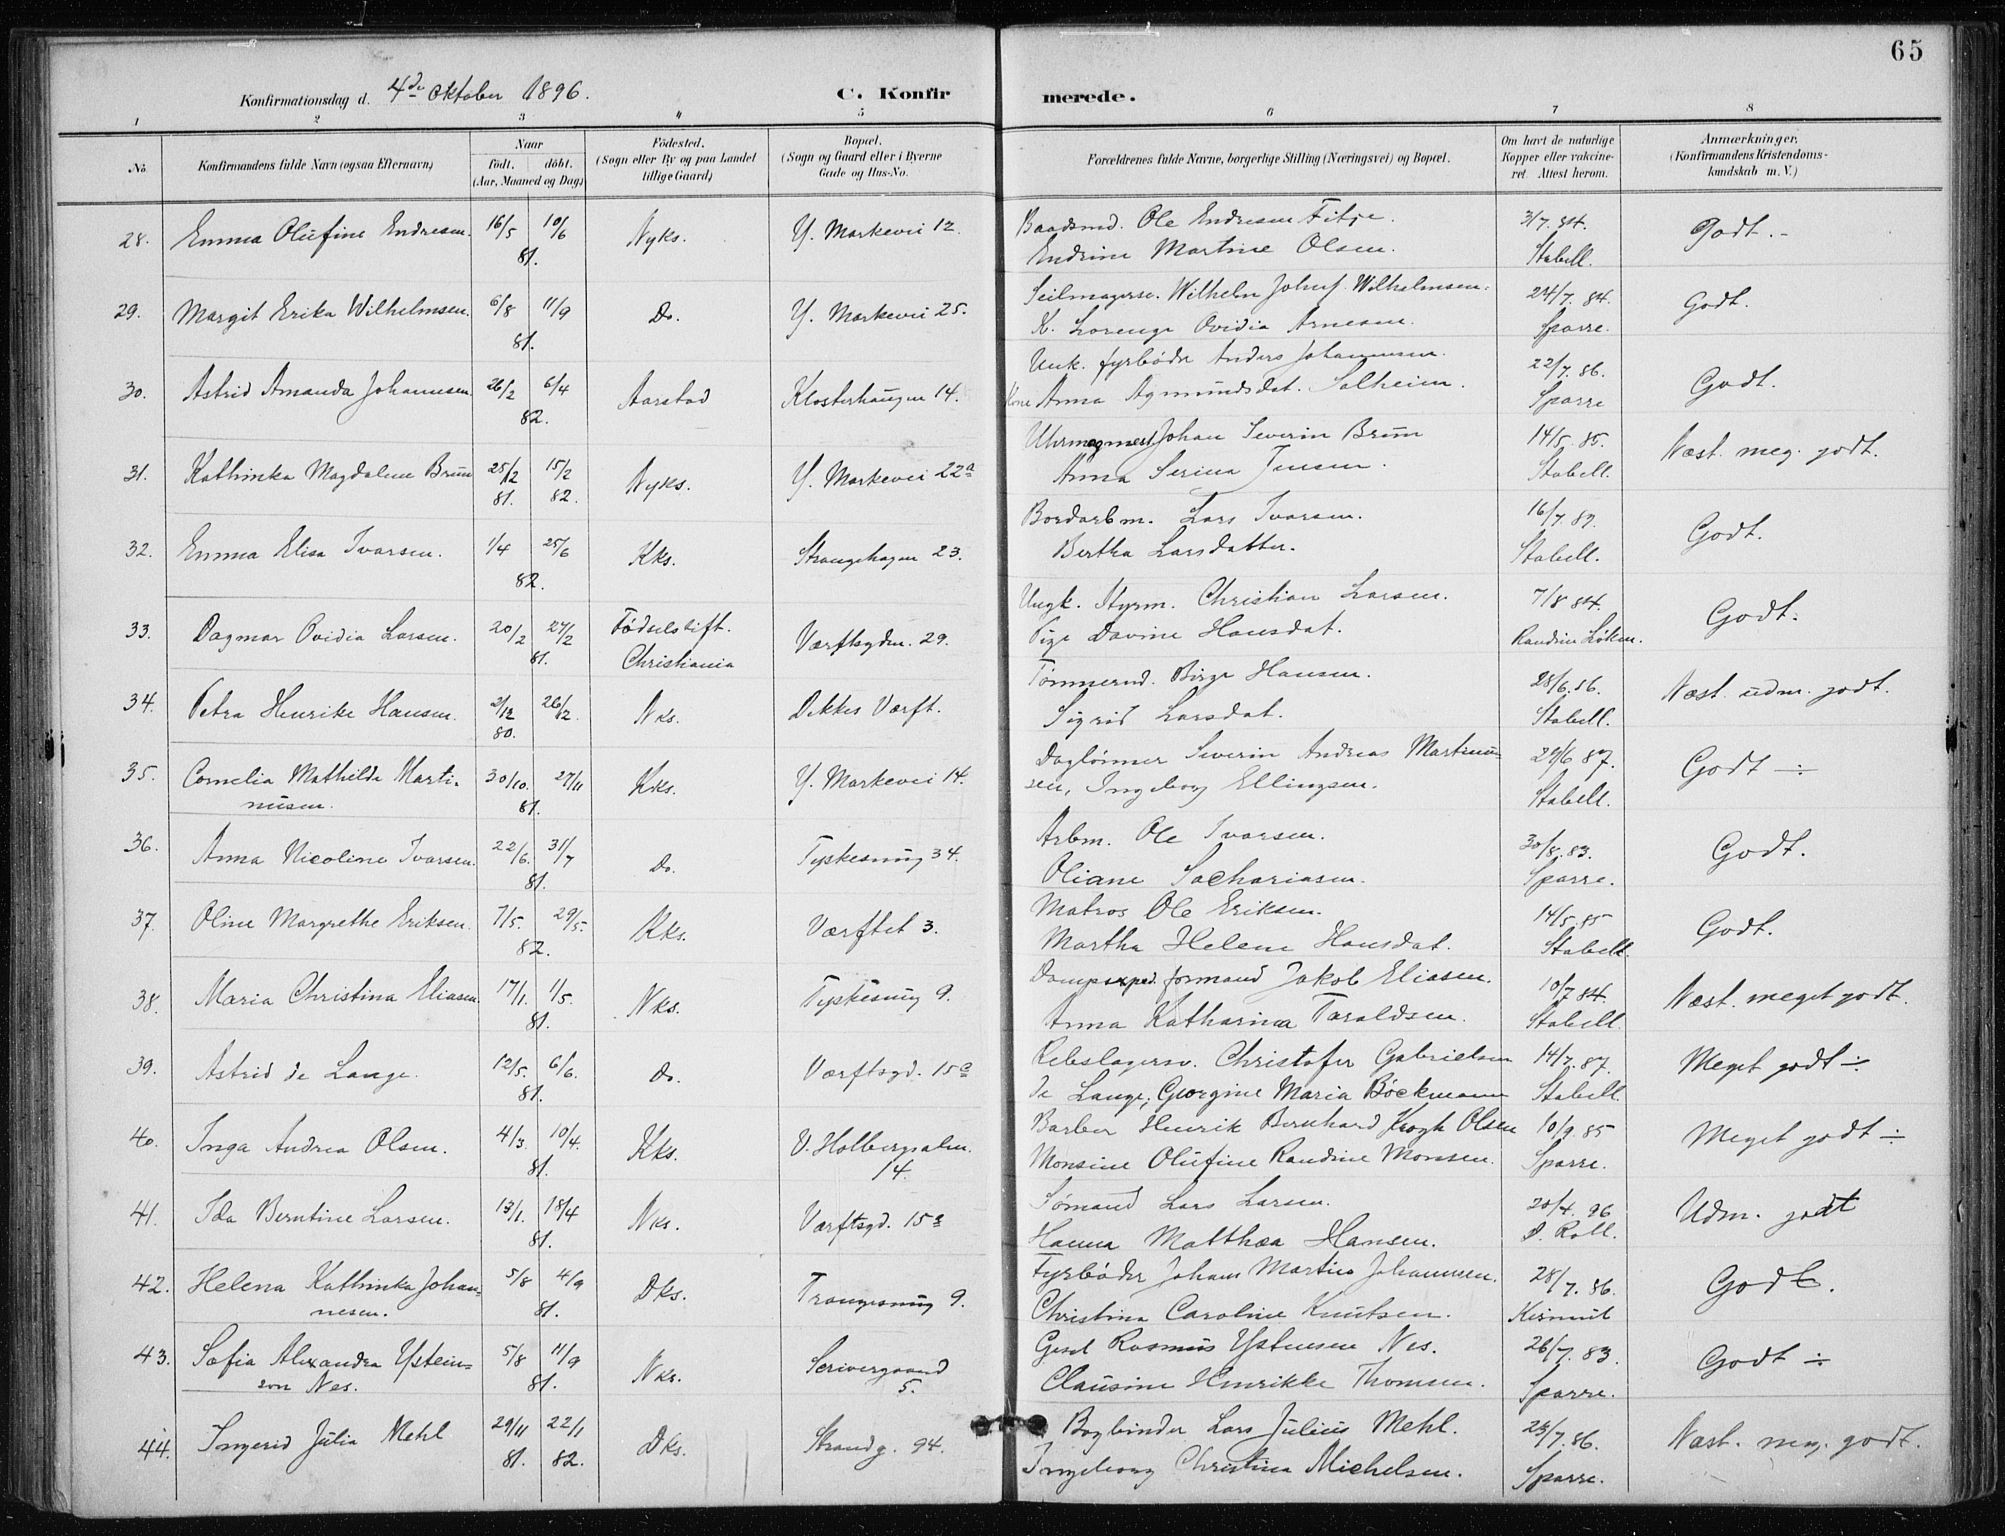 65
Konfirmationsdag d. 4de Oktober 1896. C. Konfirmerede.
1 2 3 4 5 6 7 8
No Konfirmandens fulde Navn (ogsaa Efternavn) Naar født. døbt. (Aar, Maaned og Dag) Födested. (Sogn eller By og paa Landet tillige Gaard) Bopæl. (Sogn og Gaard eller i Byerne Gade og Hus-No. Forældrenes fulde Navne, borgerlige Stilling (Næringsvei) og Bopæl. Om havt de naturlige Kopper eller vakcineret Attest herom. Anmærkninger, (Konfirmandens Kristendomskundskab m. V.)
28. Emma Olufine Endresen. 16/5 10/6 Nyks. Y. Markevei 12. Baadsmd. Ole Endresen Fitje. 3/7. 84. Godt.
81. Endrine Martine Olsen. Stabell.
29. Margit Erika Wilhelmsen. 6/8 11/9 Do. Y. Markevei 25. Seilmagersv. Wilhelm Wilhelmsen. 24/7. 84. Godt.
81. Ovidia Arnesen. Sparre.
30. Astrid Amanda Johannesen 26/2 6/4 Aarstad Klosterhaugen 14. Unk. fyrbøder Anders Johannesen. 22/7. 86. Godt.
82. Kone Anna Agmundsdat. Solheim. Sparre
31. Kathinka Magdalene Brun 25/12 15/2 Nyks. Y. Markevei 22a Johan Severin Brun 14/5. 85. Næst. meg. godt.
81. 82. Anna Serina Jensen. Stabell.
32. Emma Elisa Ivarsen. 1/4 25/6 Kks. Strangehagen 23. Bordarbm. Lars Ivarsen. 16/7. 87. Godt.
82. Bertha Larsdatter. Stabell.
33. Dagmar Ovidia Larsen. 20/2 27/2 Fødselstift. Værftsgdn. 29. Ungk. Styrm. Christian Larsen. 7/8 84. Godt.
81. Christiania Pige Davine Hansdat. Randine Løken.
34. Petra Henrike Hansen. 2/12 26/2. Nks. Dekkes Værft. Tømmermd. Birge Hansen. 28/6. 86. Næst. udm. godt.
80. Sigrid Larsdat. Stabell.
35. Cornelia Mathilde Marti- 30/10. 27/11 Kks. Y. Markevei 14. Daglønner Severin Andreas Martinu- 29/6 87. Godt ÷
nusen. 81. sen, Ingeborg Ellingsen. Stabell.
36. Anna Nicoline Ivarsen. 22/6. 31/7 Do. Tyskesmug 34. Arbm. Ole Ivarsen. 30/8. 83. Godt.
81. Oliane Sachariasen. Sparre.
37. Oline Margrethe Eriksen. 7/5. 29/5. Kks. Værftet 3. Matros Ole Eriksen. 14/5. 85 Godt.
82. Martha Helene Hansdat. Stabell.
38. Maria Christina Eliasen. 17/1. 1/5. Nks. Tyskesmug 9. Dampsexped. formand Jakob Eliasen. 10/7 84. Næst. meget godt.
81. Anna Katharina Taraldsen. Stabell.
39. Astrid de Lange. 12/5. 6/6. Do. Værftsgd. 15a Rebslagersv. Christofer Gabrielsen 14/7. 87. Meget godt ÷
81. de Lange, Georgine Maria Böckmann Stabell.
40. Inga Andrea Olsen. 4/3. 10/4. Kks. V. Holbergsalm. Barber Henrik Bernhard Krogh Olsen 10/9. 85 Meget godt ÷
81. 14. Monsine Olufine Randine Monsen. Sparre.
41. Ida Berntine Larsen. 13/1. 18/4 Nks. Værftsgd. 15a Sømand Lars Larsen. 20/4. 96 Udm. godt
81. Hanna Matthæa Hansen. Roll.
42. Helena Kathinka Johan- 5/8 4/9 Dks. Trangesmug 9. Fyrbøder Johans Martin Johannesen. 28/7. 86. Godt.
nesen. 81. Christina Caroline Knutsen.
43. Sofia Alexandra Ystein- 5/8 11/9 Nks. Scrivergaard Rasmus Ystensen Nes. 26/7. 83. Godt ÷
son Nes. 81. 5. Clausine Henrikke Thomsen. Sparre.
44. Ingerid Julia Mehl 29/11 22/1 Dks. Strandg. 94. Bogbinder Lars Julius Mehl. 23/7. 86. Næst. meg. godt.
81. 82. Ingeborg Christina Michelsen. Sparre.